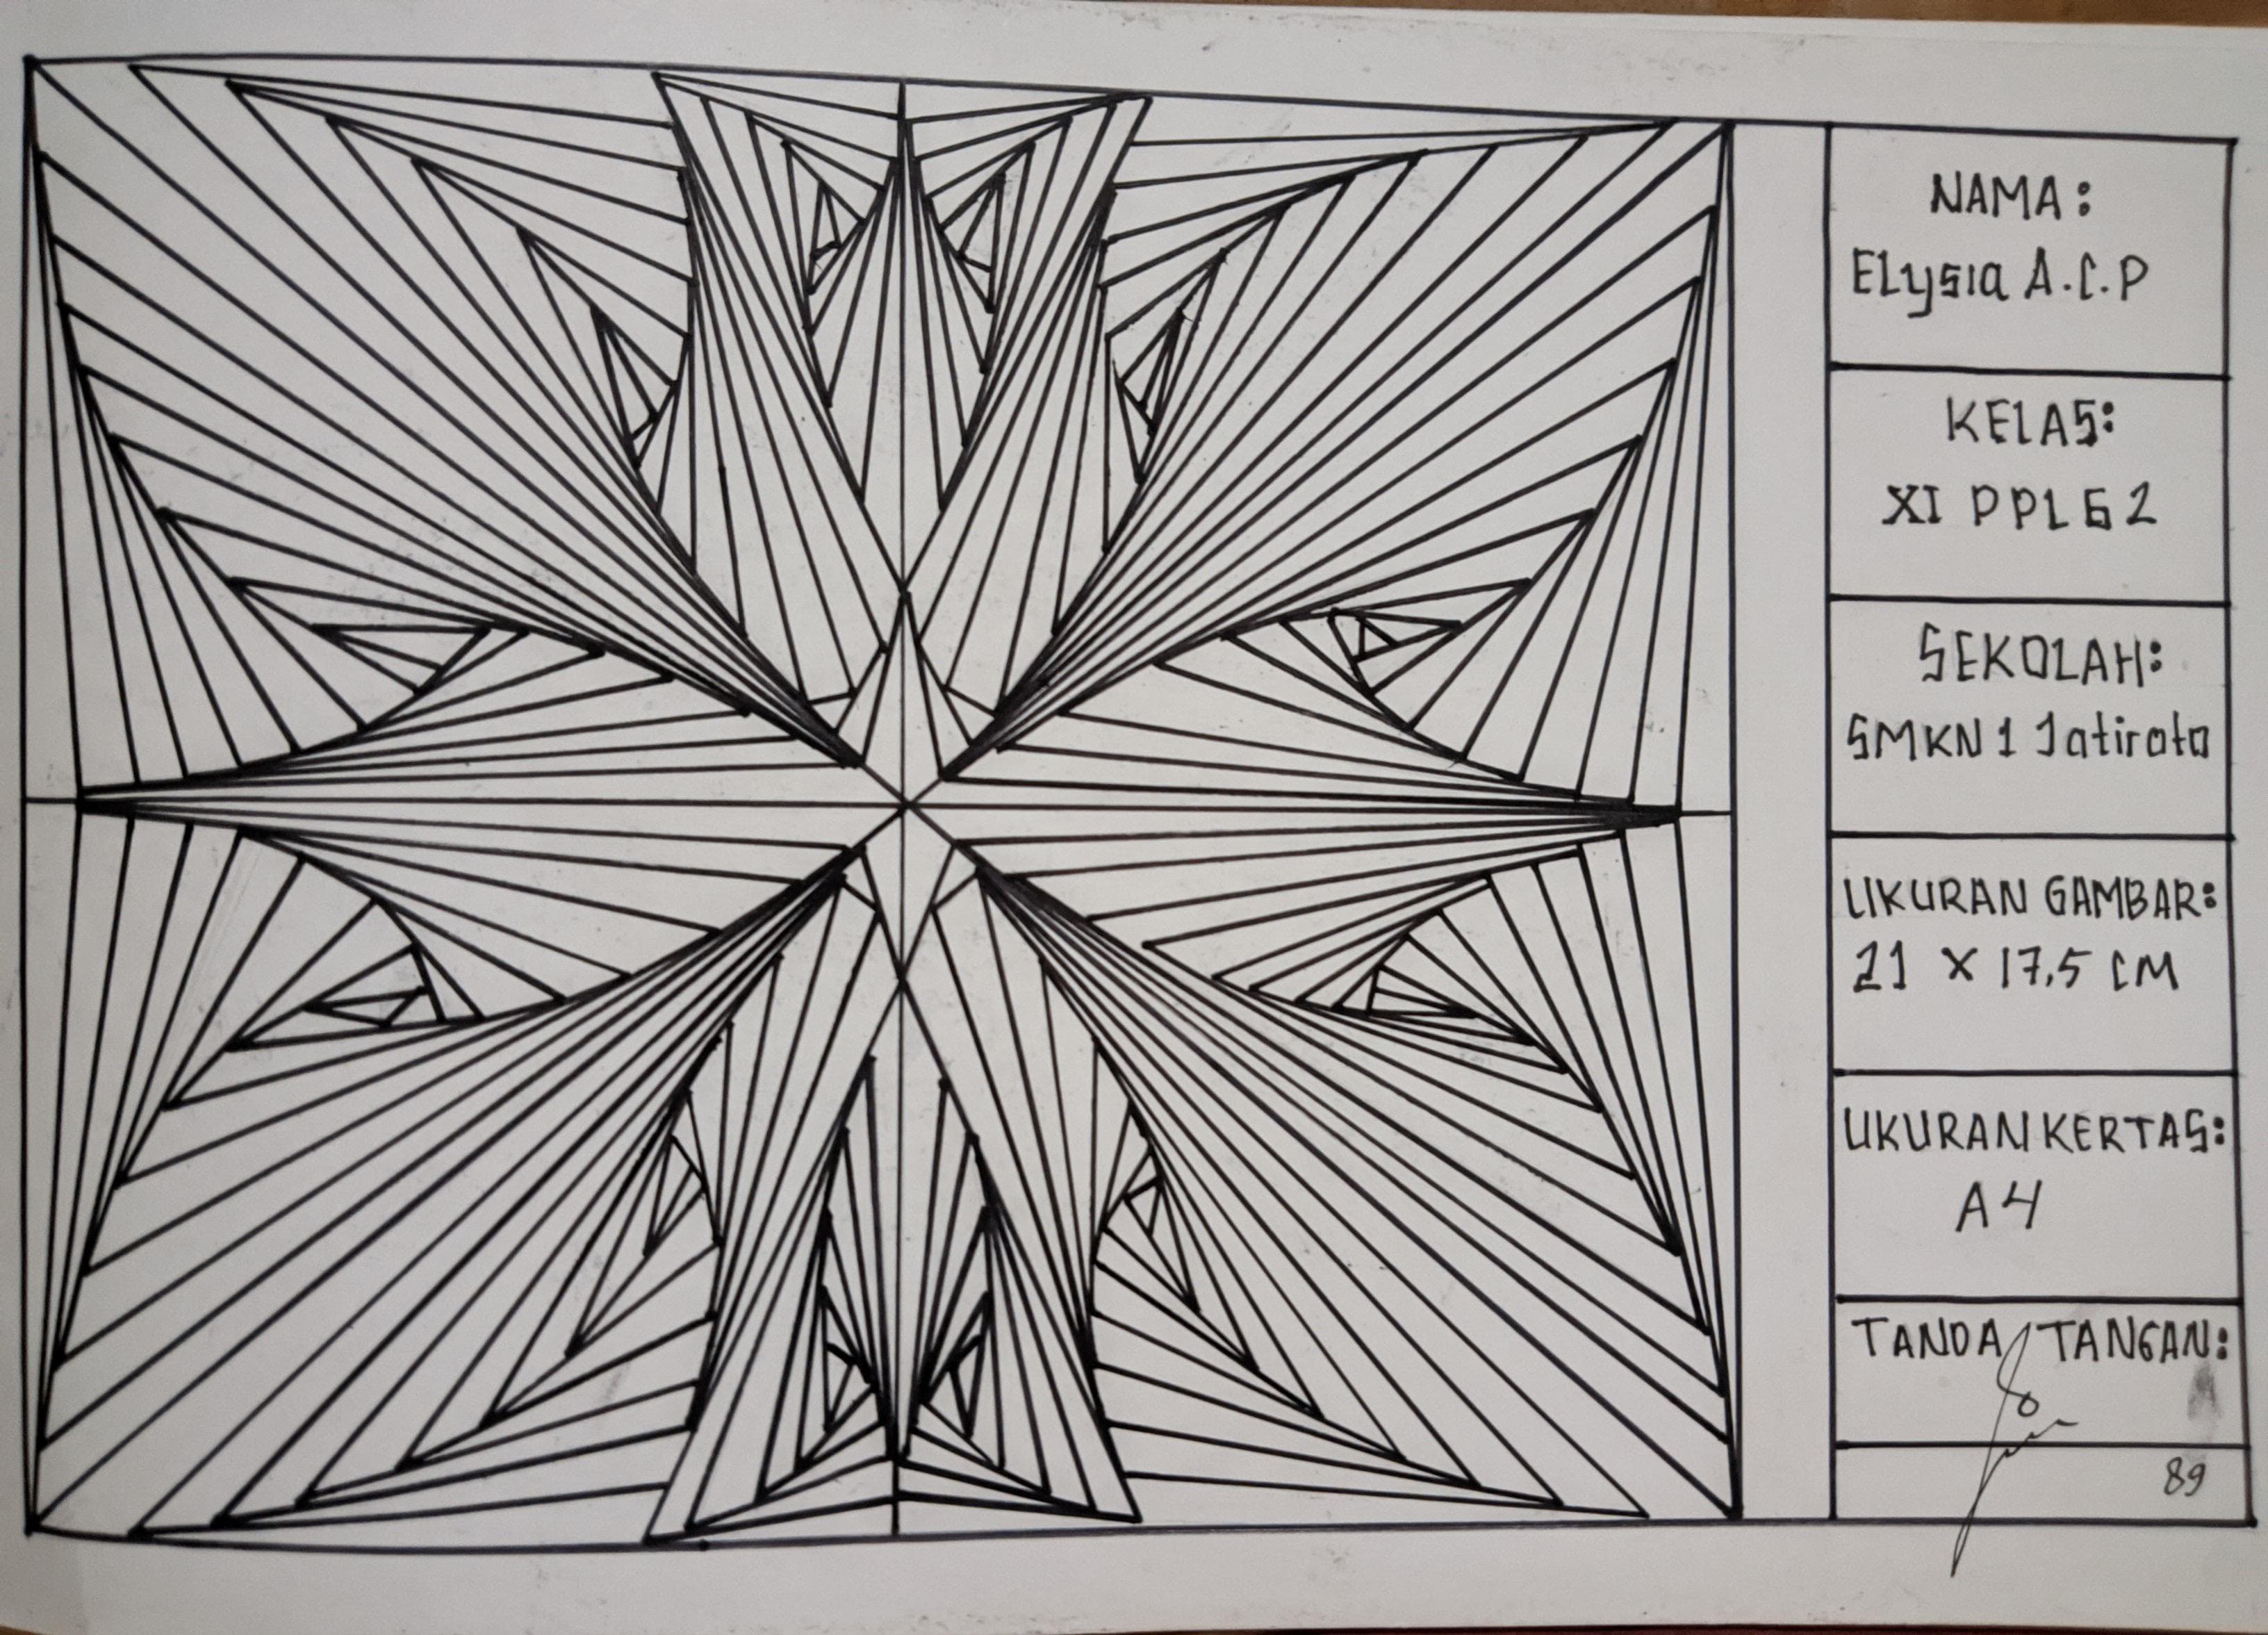 NAMA:
ELysia A.C.P
KELAS:
XI PPLG 2
SEKOLAH:
SMKN 1 Jatiroto
UKURAN GAMBAR:
21 X 17,5 CM
UKURAN KERTAS:
A4
TANDA TANGAN:
89